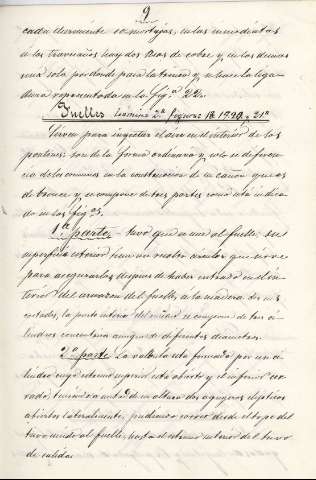 9
cada elemento se mortajas, en las inmediatas
á los travesaños hay dos tiras de cobre y en las demas
una sola por donde pasa la tension y se hace la liga-
dura representada en la fig.ª 22.
Fuelles Lamina 2.ª figuras 18 19 20 y 21ª
Sirven para inyectar el aire en el interior de los
pontones: son de la forma ordinaria y solo se diferencia
de los comunes en la construccion de su cañon que es
de bronce y se compone de tres partes como está indica-
do en las fig.ªs
1.ª parte - tuvo que se une al fuelle: su
superficie exterior tiene un cuadro circular que sirve
para asegurarlo despues de haber entrado en el in-
terior del armazon del fuelle, á la madera de sus
costados, la parte interior del se compone de tres ci-
lindros concentricos aunque de diferentes diametros.
2.ª parte La valvula esta formada por un ci-
lindro cuyo estremo superior está abierto y el inferior cer-
rado, teniendo á mitad de su altura dos agujeros elípticos
abiertos lateralmente, pudiendo correr desde el tope del
tuvo unido al fuelle, hasta el estremo interior del tuvo
de salida.